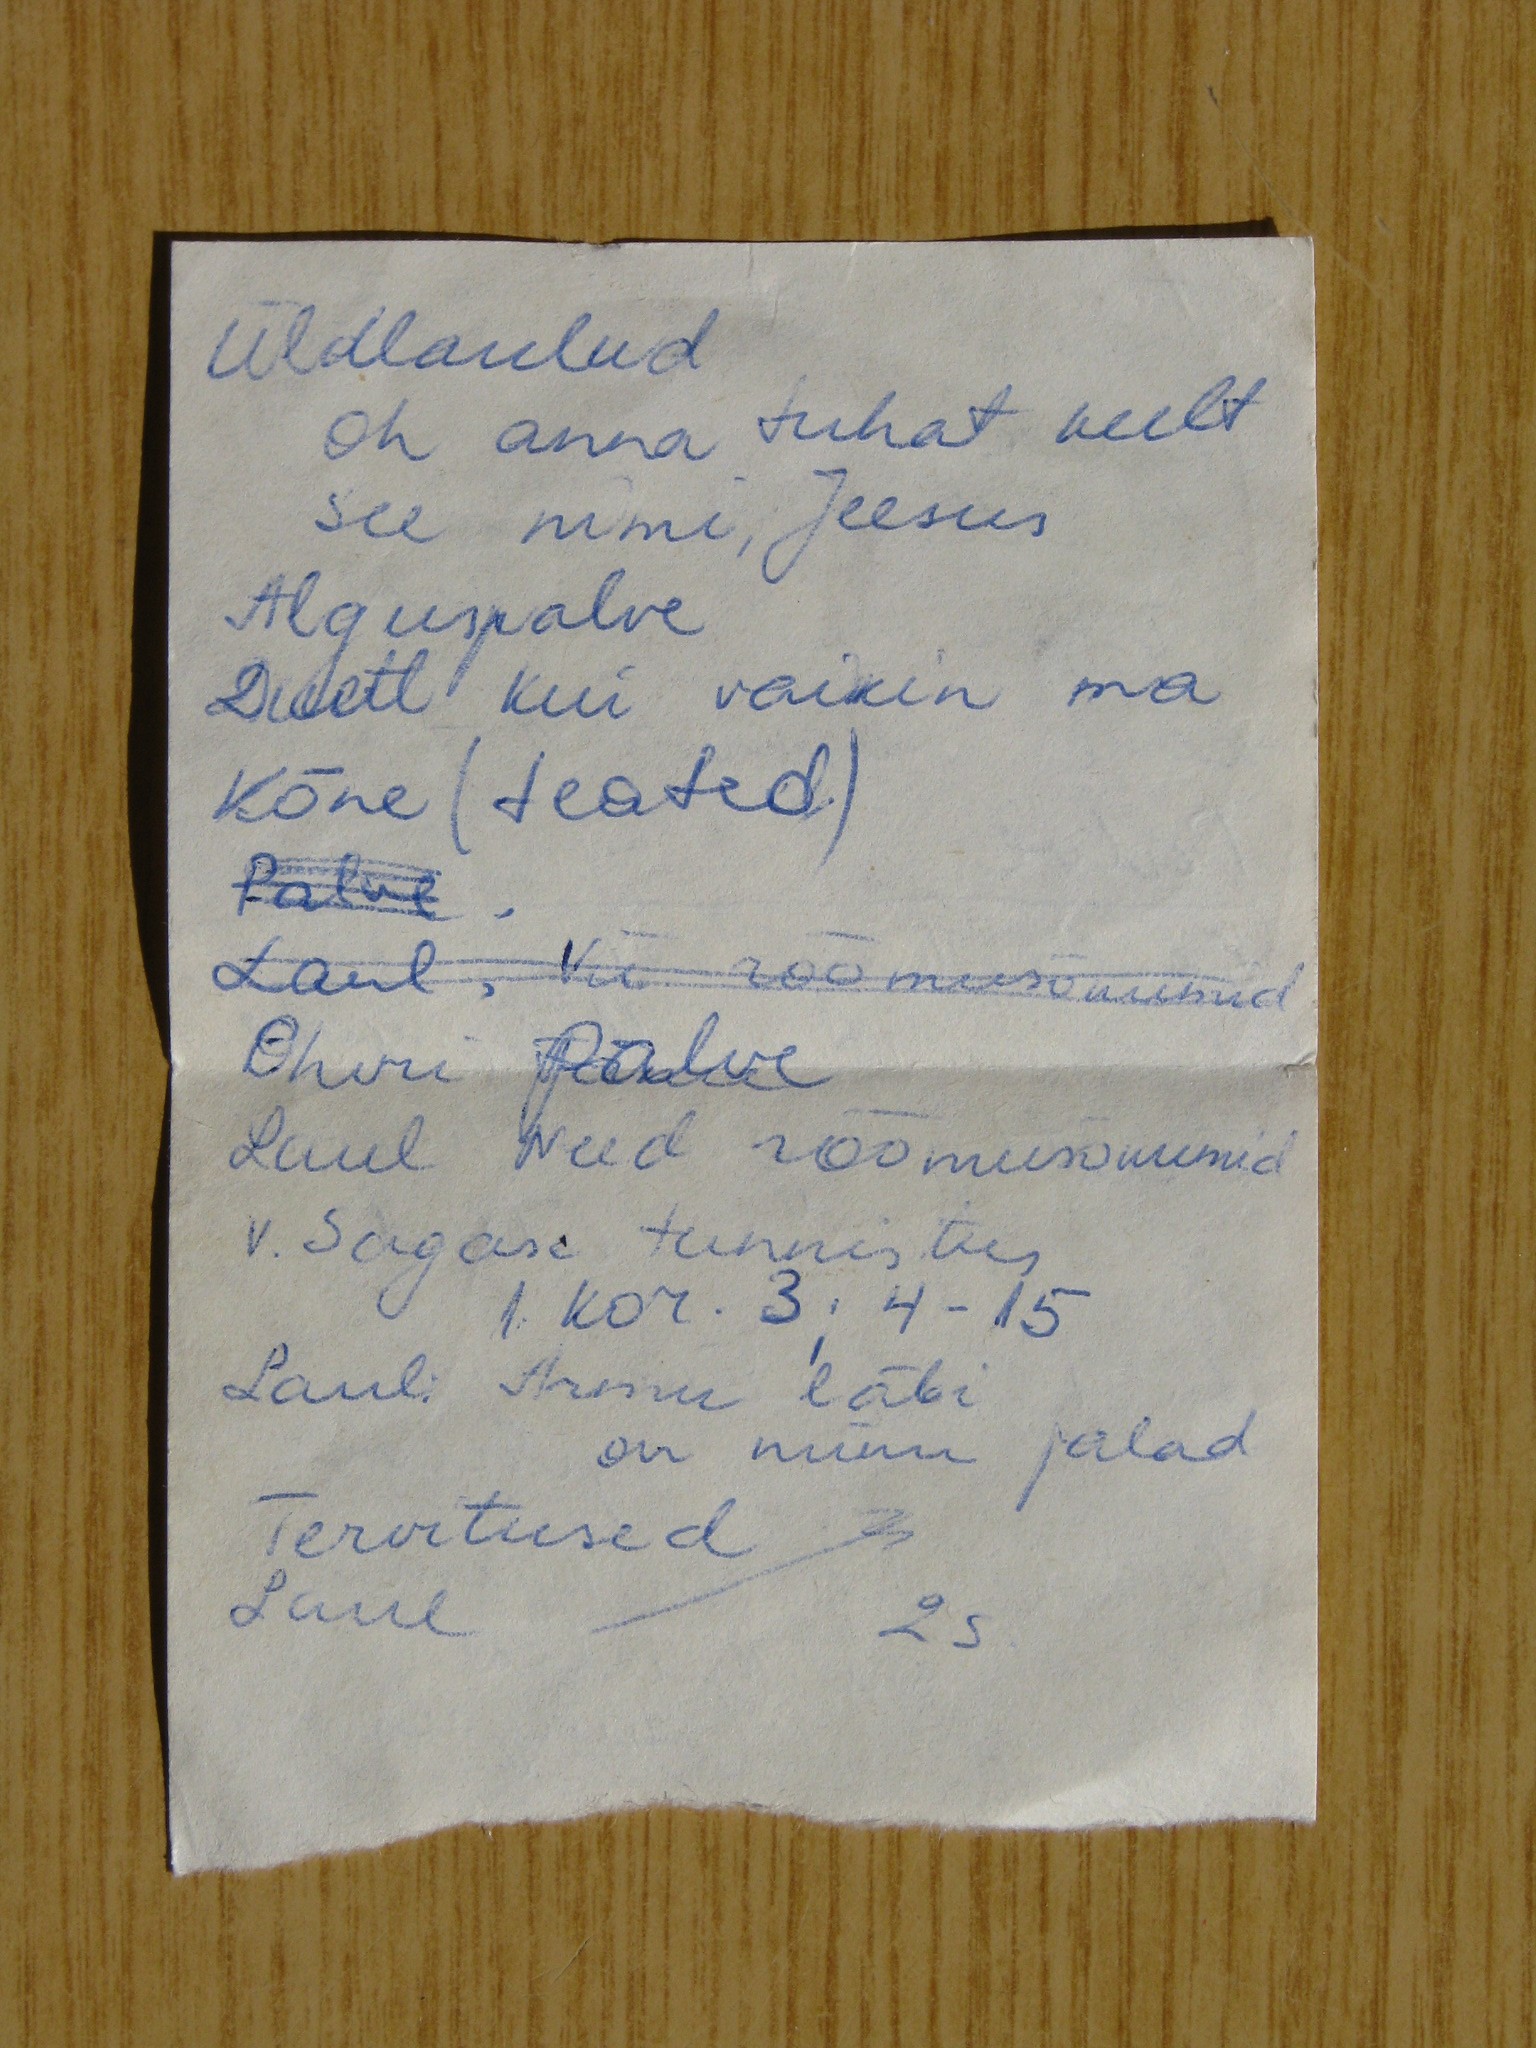 Üldlaulud
Oh anna tuhat keelt
See nimi, Jeesus
Alguspalve
Duett kui vaikin ma
Kõne (teated)
Palve
Laul, Vii rõõmusõnumid
Ohvri palve
Laul Need rõõmusõnumid
v. Sagari tunnistus
1. Kor. 3; 4-15
Laul: Armu läbi
on minu jalad
Tervitused
Laul 2 s.